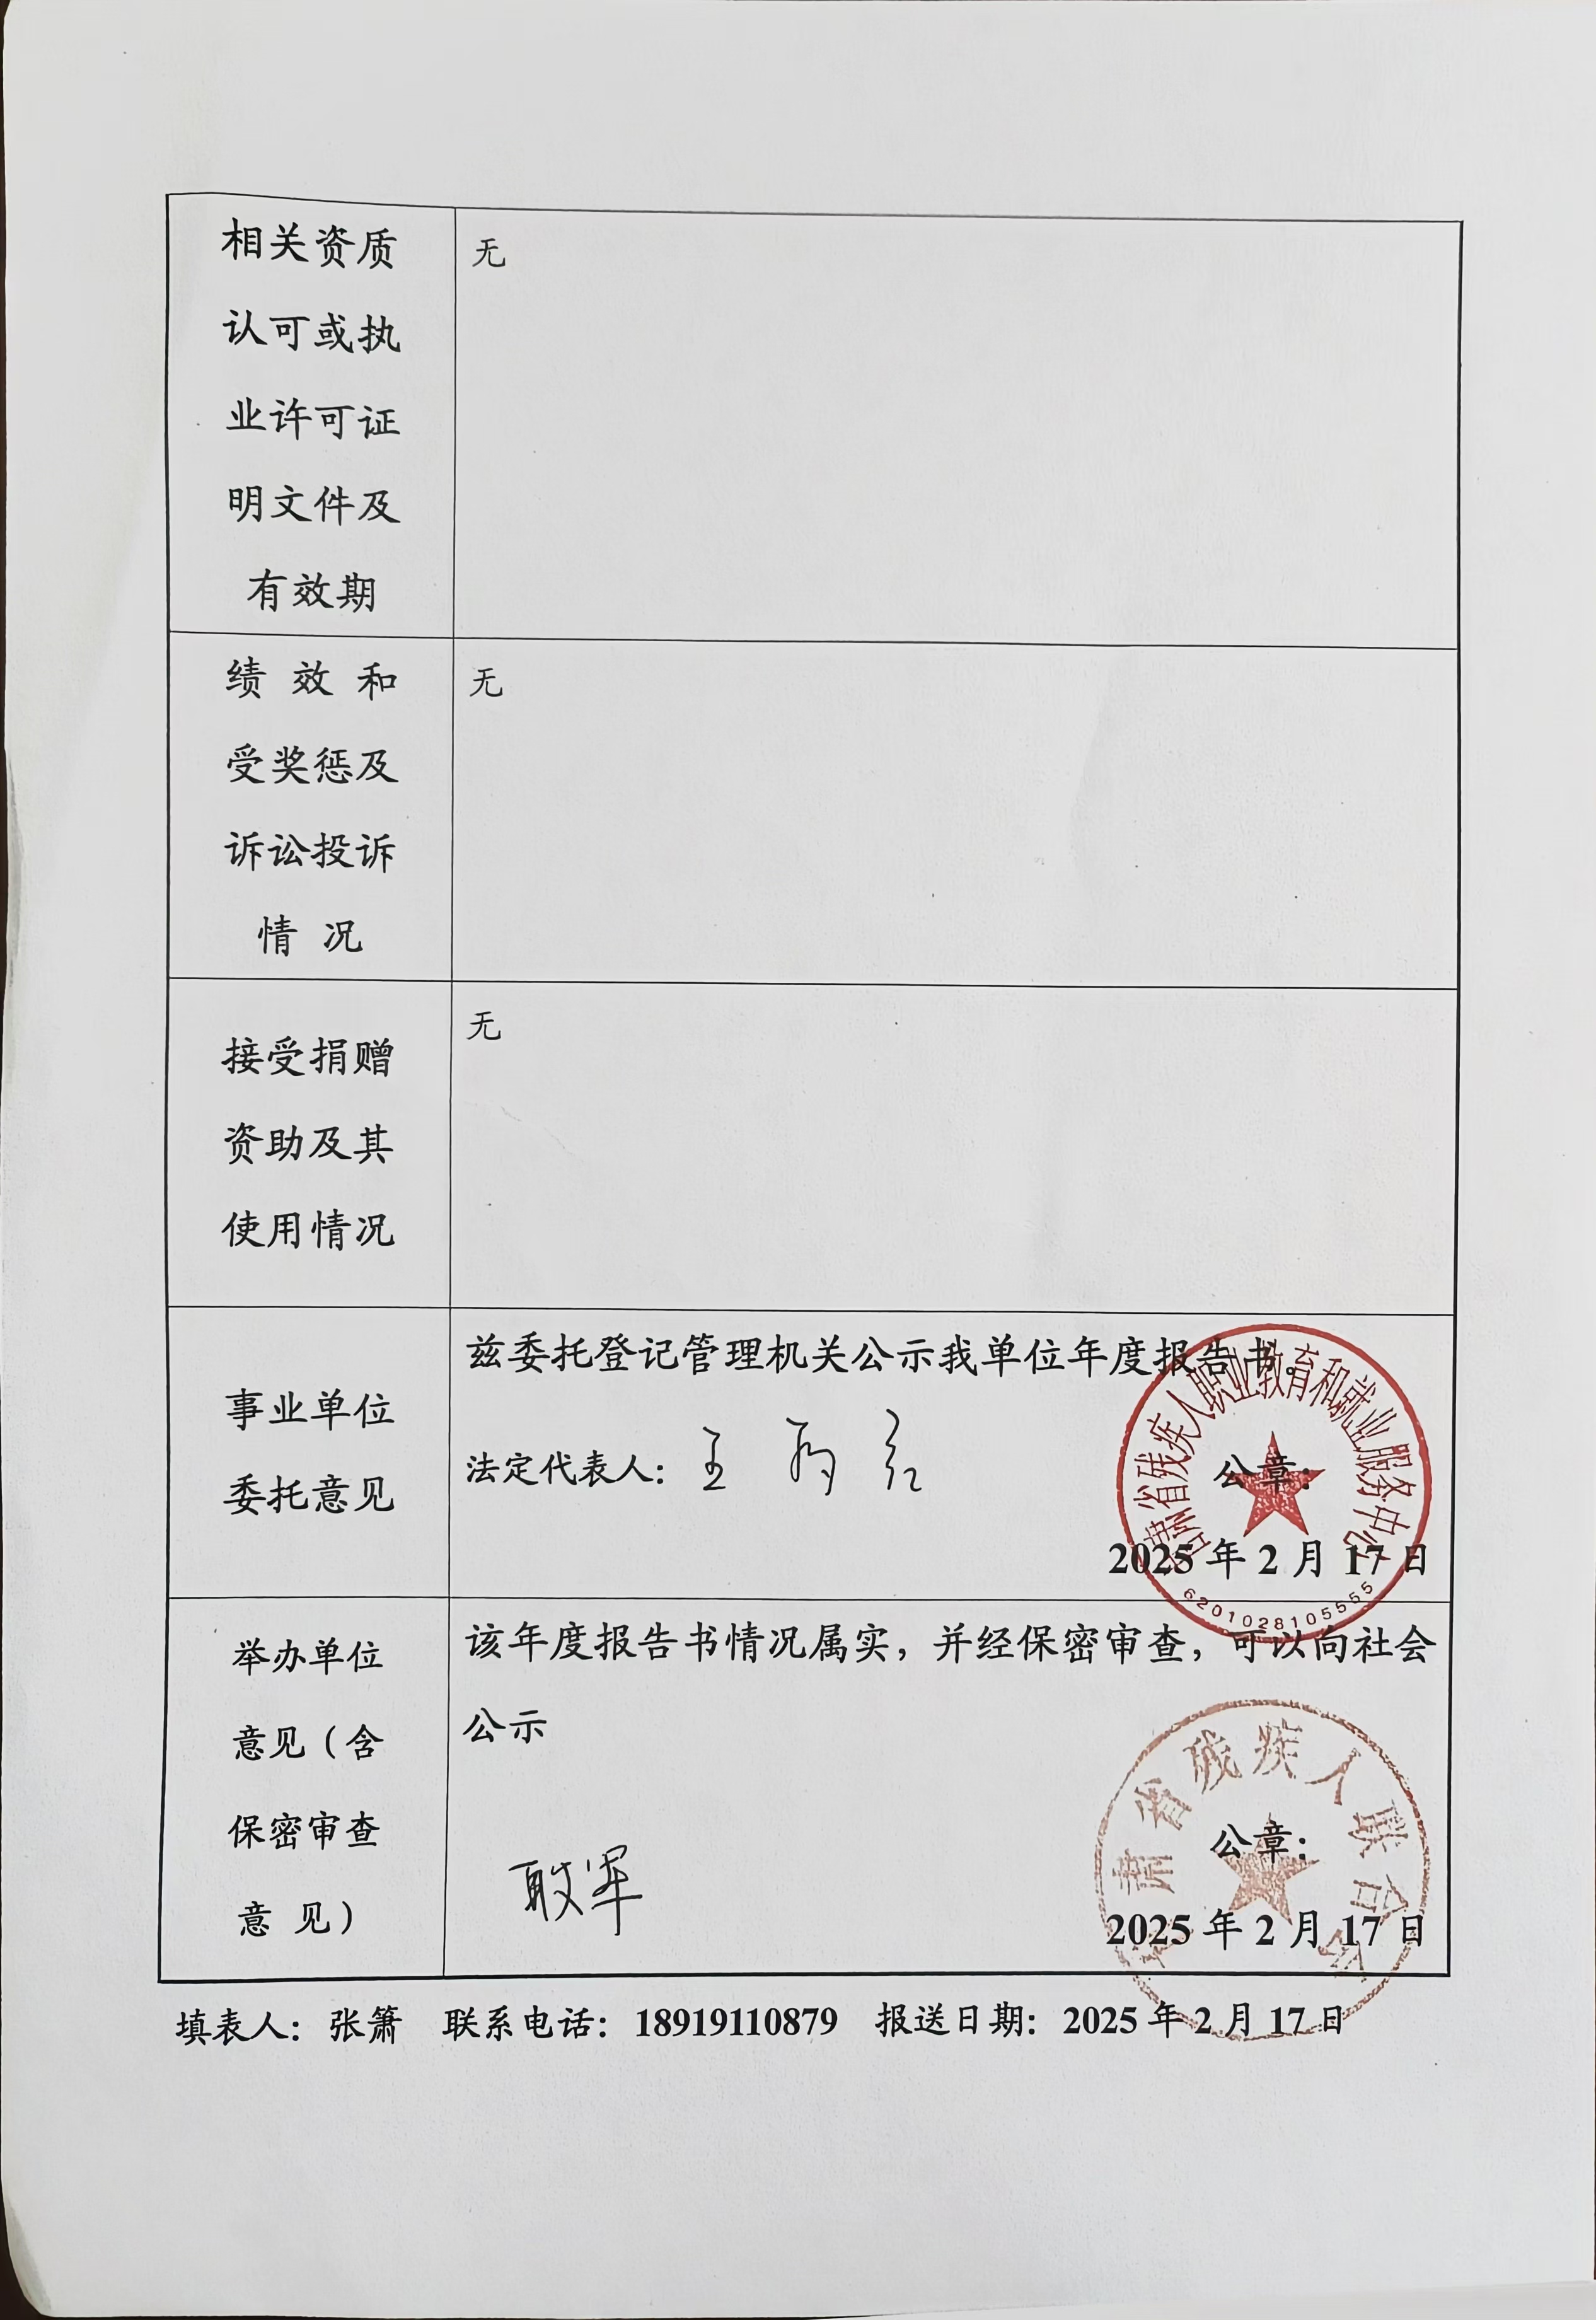 相关资质
认可或执
业许可证
明文件及
有效期
无
绩 效 和
受奖惩及
诉讼投诉
情 况
无
接受捐赠
资助及其
使用情况
无
事业单位
委托意见
兹委托登记管理机关公示我单位年度报告书。
法定代表人：王
公章：
2025 年 2 月 17 日
甘肃省残疾人职业教育和就业服务中心
6201028105555
举办单位
意见（含
保密审查
意 见）
该年度报告书情况属实，并经保密审查，可以向社会
公示
公章：
2025 年 2 月 17 日
甘肃省残疾人联合会
填表人：张箫 联系电话：18919110879 报送日期：2025 年 2 月 17 日